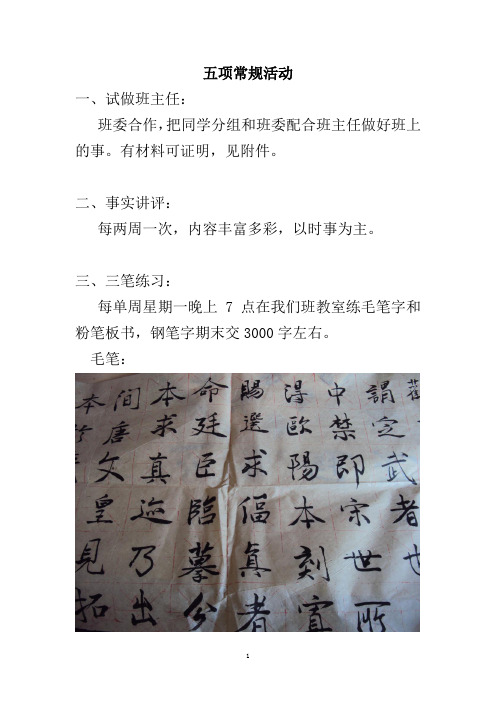 五项常规活动
一、试做班主任：
班委合作，把同学分组和班委配合班主任做好班上
的事。有材料可证明，见附件。
二、事实讲评：
每两周一次，内容丰富多彩，以时事为主。
三、三笔练习：
每单周星期一晚上 7 点在我们班教室练毛笔字和
粉笔板书，钢笔字期末交3000字左右。
毛笔：
謂定武者也
中禁即宋世所
得歐陽本刻寘
賜選求偪真者
命廷臣臨摹公
本求真迹乃出
間唐文皇見拓
本
1